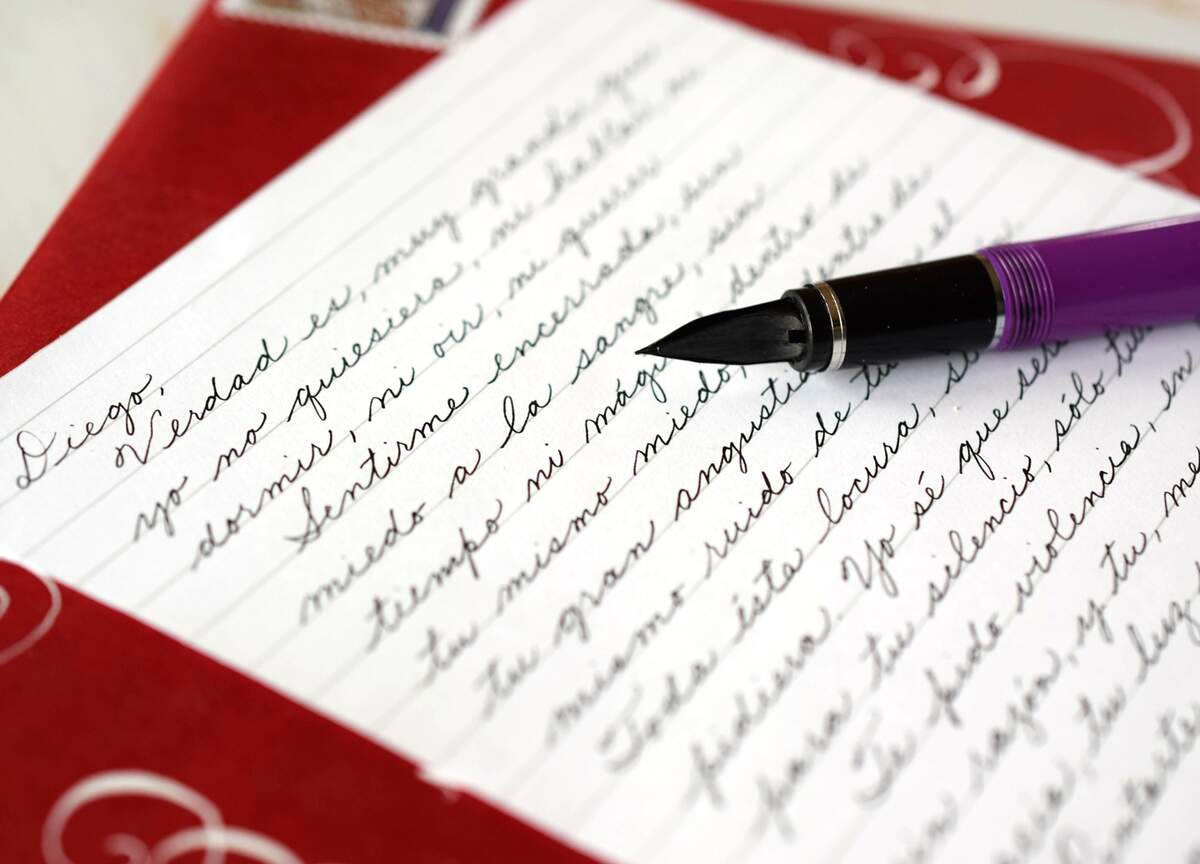 Diego,
Verdad es, muy grande, que
yo no quiesiera, ni hablar, ni
dormir, ni oir, ni querer
Sentirme encerrada, sin
miedo a la sangre, sin
tiempo ni mági dentro de
tu mismo miedo, dentro de
tu gran angustia el
mismo ruido de tu
Toda ésta locura, si
pidiera. Yo sé que
para tu silencio, sólo
Te pido violencia, en
razón, y tu, me
tu luz